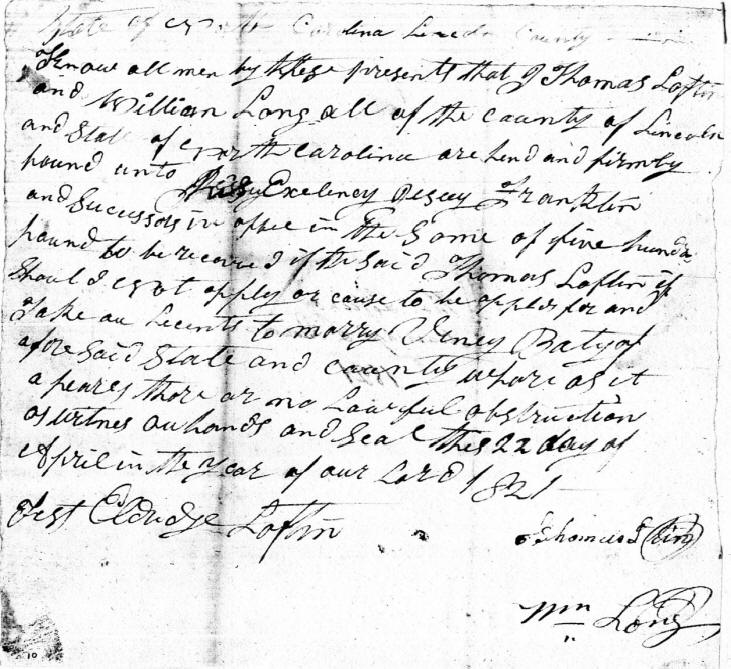 State of North Carolina Lincoln County
Know all men by these presents that I Thomas Loftin
and William Long all of the county of Lincoln
and State of North Carolina are hend and firmly
bound unto his Exelency Jesey Franklin
and Sucussors in ofice in the Some of five hundd
pound to be recovered if the said Thomas Loftin if
Should Not apply or cause to be applis for and
Take au Lecents to marry Veney Baty of
afore Said State and county where as it
apeares thore ar no Lawful obstruction
as witnes ou hands and Seal this 22 day of
April in the Year of our Lord 1821
Test Eldridge Loftin
Thomas
Wm Long
10